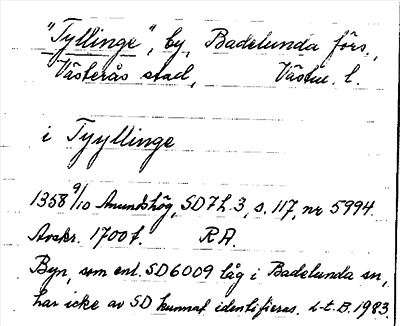 "Tyllinge", by, Badelunda förs.,
Västerås stad, Västm. l.
i Tyyllinge
1358 9/10 Anundshög, SD 7 h. 3, s. 117, nr 5994.
Avskr. 1700 t. RA.
Byn, som enl. SD 6009 låg i Badelunda sn,
har icke av SD kunnat identifieras. L-t. B. 1983.